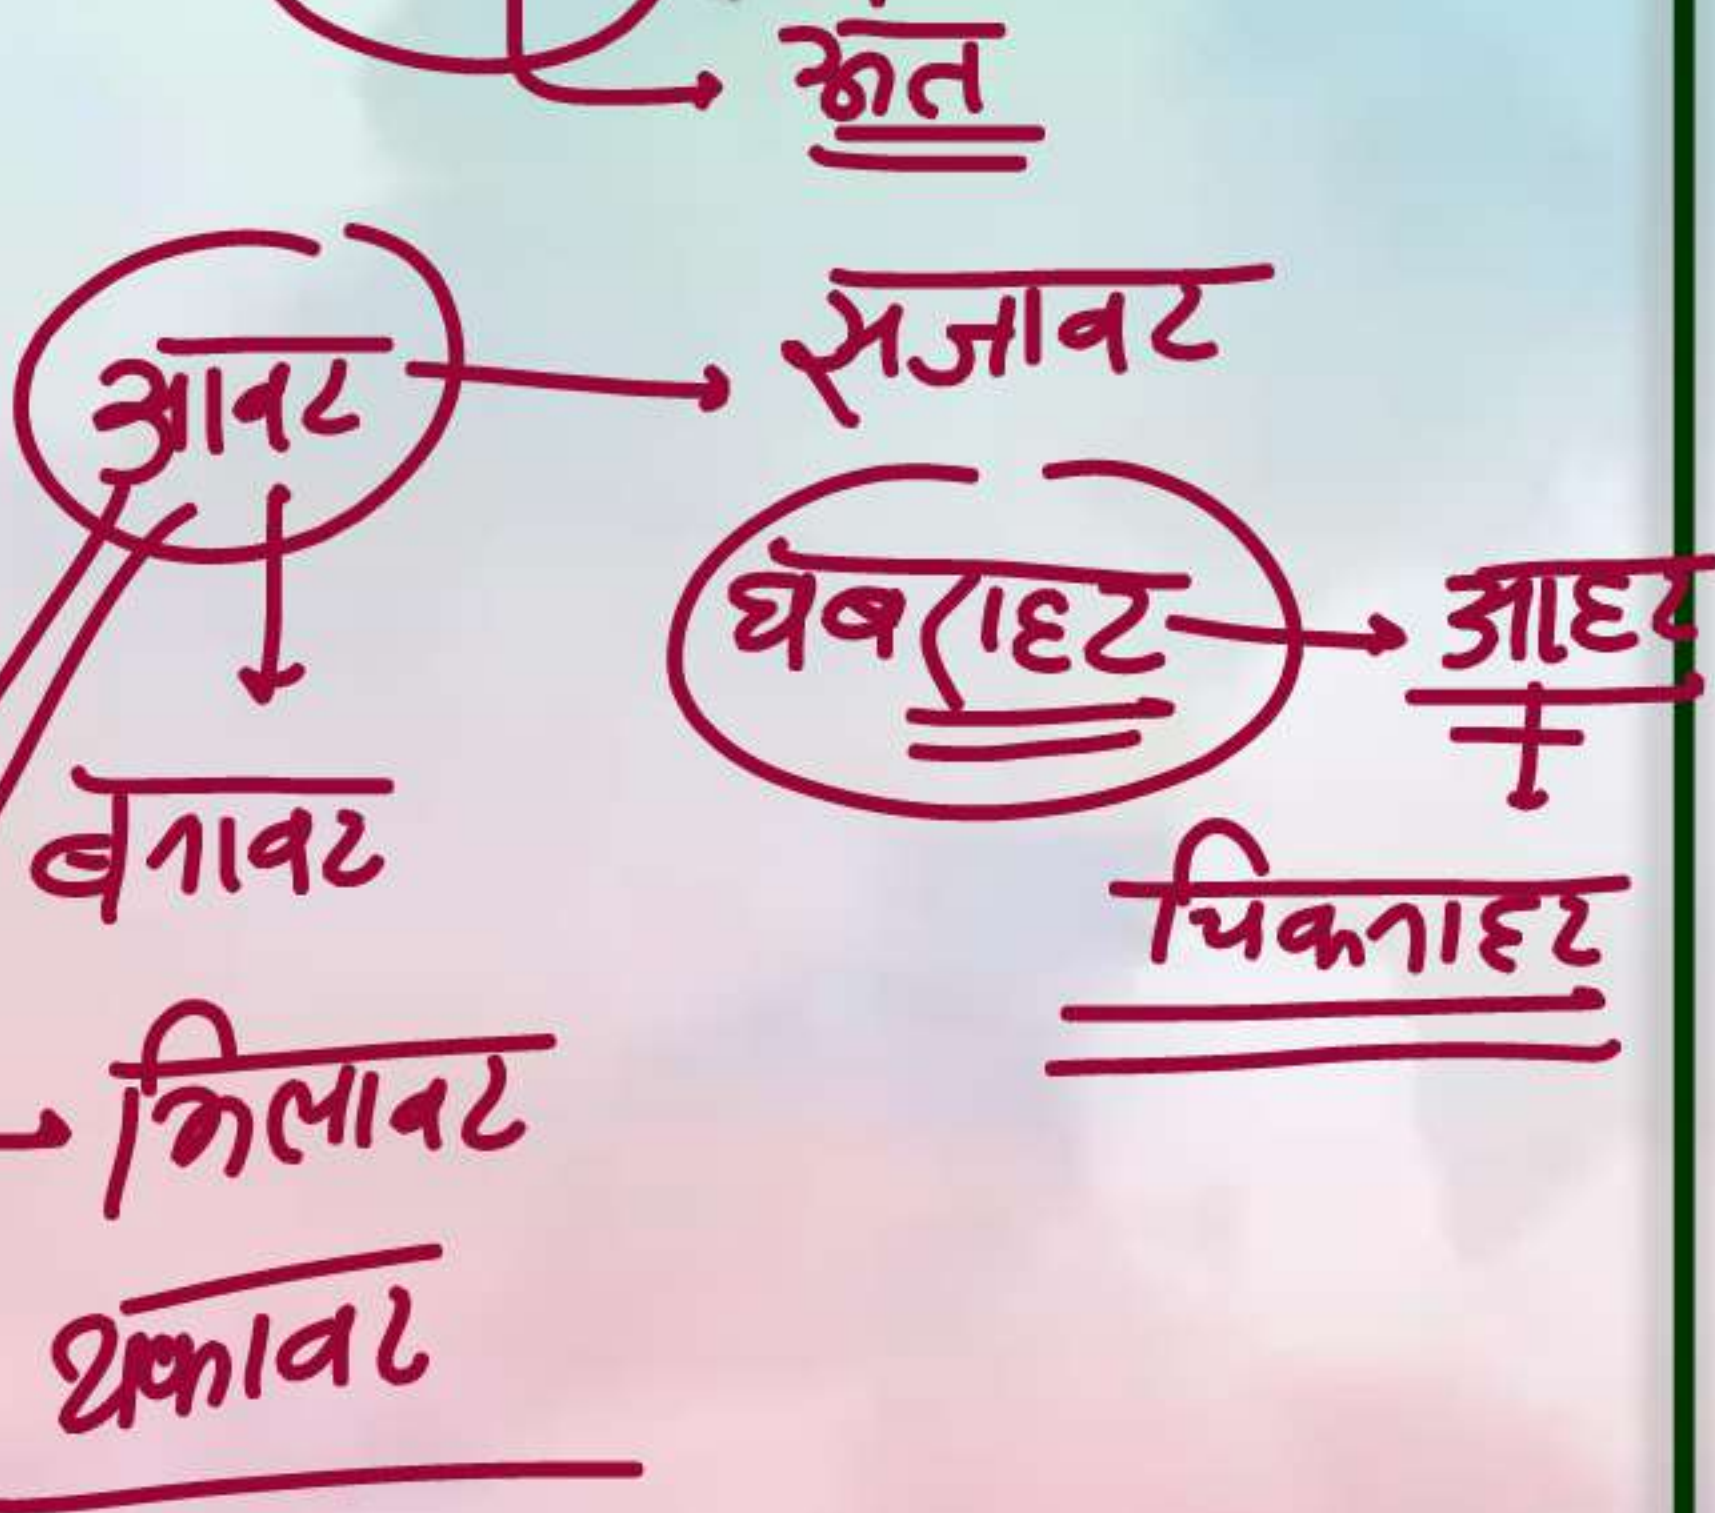 रूत
सजावट
आवट
घबराहट
आहट
बनावट
चिकनाहट
मिलावट
थकावट